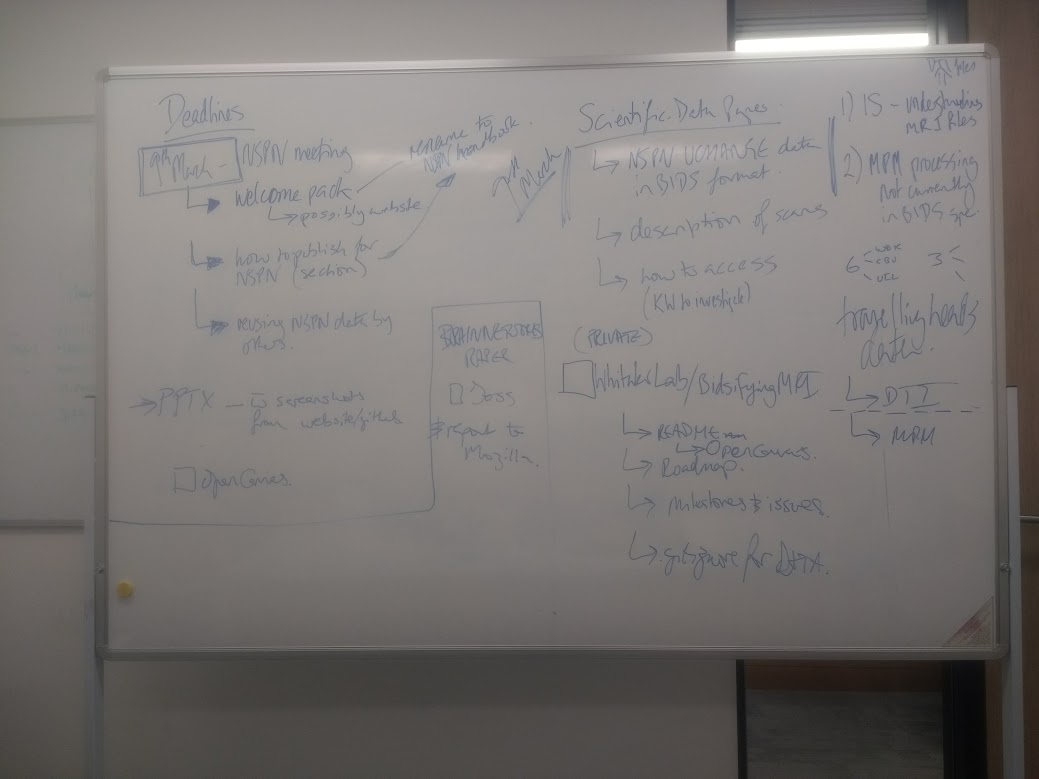 Deadlines
9th March -
NSPN meeting
welcome pack
possibly website
rename to
NSPN handbook
how to publish for
NSPN (section)
reusing NSPN data by
others.
PPTX - screenshots
from website/github
PAPER
Joss
report to
Mozilla.
Scientific Data Paper
March
NSPN UCHANGE data
in BIDS format.
description of scans
how to access
(KW to investigate)
(PRIVATE)
WhitakerLab/BidsifyingMRI
README
OpenCanvas.
Roadmap.
milestones & issues.
gitignore for DATA.
1) IS -
MRI files
2) MPM processing
not currently
in BIDS spec
6 WBIC
CBU
UCL
3
travelling heads
DTI
MPM